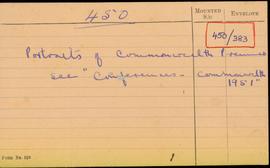 480
MOUNTED
No.
ENVELOPE
450/383
Portraits of Commonwealth Premiers
see "Conferences - Commonwealth
1951"
FORM NO.
1